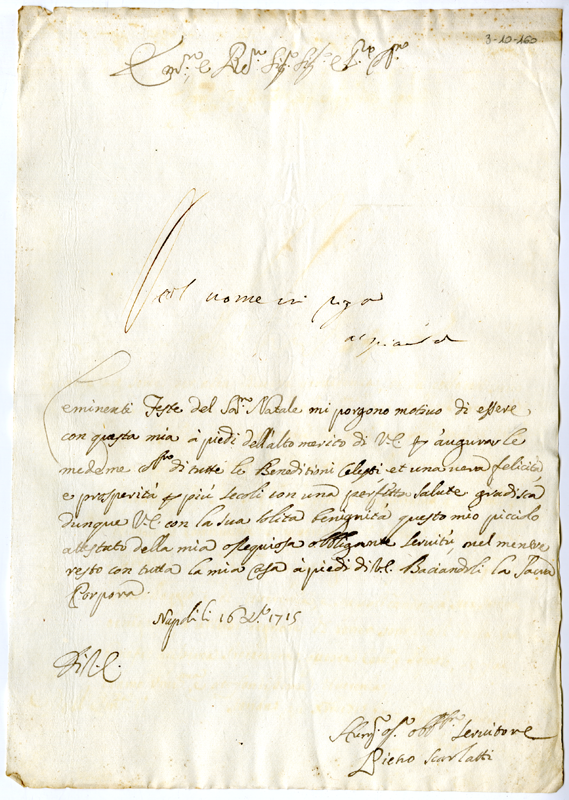 3-10-160
Em.mo e Re.mo Sig.r Sig.r e P.rone
nome in
eminenti Feste del Sa.mo Natale mi porgono motivo di essere
con questa mia à piedi dell'alto merito di V.E. p augurarle
medeme di tutte le Beneditioni Celesti et una vera felicità
e prosperità p più secoli con una perfetta salute gradisca
dunque V.E. con la sua solita benignità questo mio picciolo
attestato della mia ossequiosa obbligante servitù, nel mentre
resto con tutta la mia Casa à piedi di V.E. Baciandoli la Sacra
Porpora.
Napoli li 16 X.bre 1715
Di V.E.
Servitore
Pietro Scarlatti